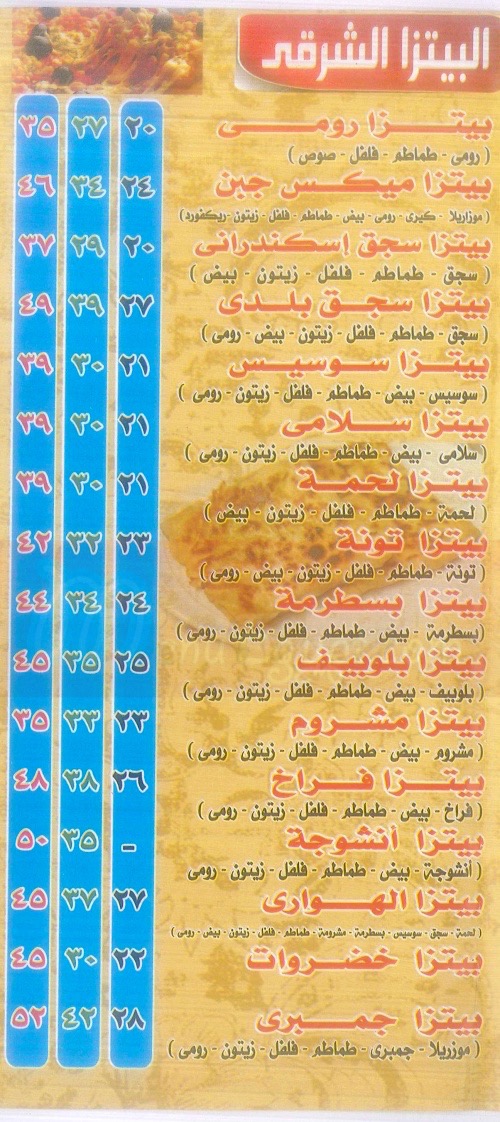 البيتزا الشرقى
بيتزا رومى ٢٠ ٢٧ ٣٥
( رومى - طماطم - فلفل - صوص )
بيتزا ميكس جبن ٢٤ ٣٤ ٤٦
( موزاريلا - كيرى - رومى - بيض - طماطم - فلفل - زيتون -ريكفورد)
بيتزا سجق إسكندرانى ٢٠ ٢٩ ٣٧
( سجق - طماطم - فلفل - زيتون - بيض )
بيتزا سجق بلدى ٢٧ ٣٩ ٤٩
( سجق - طماطم - فلفل - زيتون - بيض - رومى )
بيتزا سوسيس ٢١ ٣٠ ٣٩
( سوسيس - بيض - طماطم - فلفل - زيتون - رومى )
بيتزا سلامى ٢١ ٣٠ ٣٩
( سلامى - بيض - طماطم - فلفل - زيتون - رومى )
بيتزا لحمة ٢١ ٣٠ ٣٩
( لحمة - طماطم - فلفل - زيتون - بيض )
بيتزا تونة ٢٣ ٣٢ ٤٢
( تونة - طماطم - فلفل - زيتون - بيض - رومى )
بيتزا بسطرمة ٢٤ ٣٤ ٤٤
(بسطرمة - بيض - طماطم - فلفل - زيتون - رومى )
بيتزا بلوبيف ٢٥ ٣٥ ٤٥
( بلوبيف - بيض - طماطم - فلفل - زيتون - رومى )
بيتزا مشروم ٢٣ ٣٣ ٣٥
( مشروم - بيض - طماطم - فلفل - زيتون - رومى )
بيتزا فراخ ٢٦ ٣٨ ٤٨
( فراخ - بيض - طماطم - فلفل - زيتون - رومى )
بيتزا أنشوجة - ٣٥ ٥٠
( أنشوجة - بيض - طماطم - فلفل - زيتون - رومى
بيتزا الهوارى ٢٧ ٣٧ ٤٥
( لحمة - سجق - سوسيس - بسطرمة - مشرومة - طماطم - فلفل - زيتون - بيض - رومى )
بيتزا خضروات ٢٢ ٣٠ ٤٥
بيتزا جمبرى ٢٨ ٤٢ ٥٢
( موزريلا - جمبرى - طماطم - فلفل - زيتون - رومى )